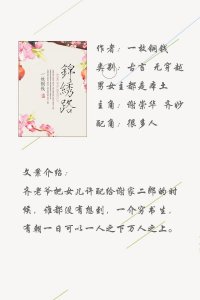 作者：一枚铜钱
类别：古言 无穿越
男女主都是本土
主角：谢崇华 齐妙
配角：很多人
錦绣路
一枚铜钱 著
文案介绍：
齐老爷把女儿许配给谢家二郎的时
候，谁都没有想到，一介穷书生，
有朝一日可以一人之下万人之上。